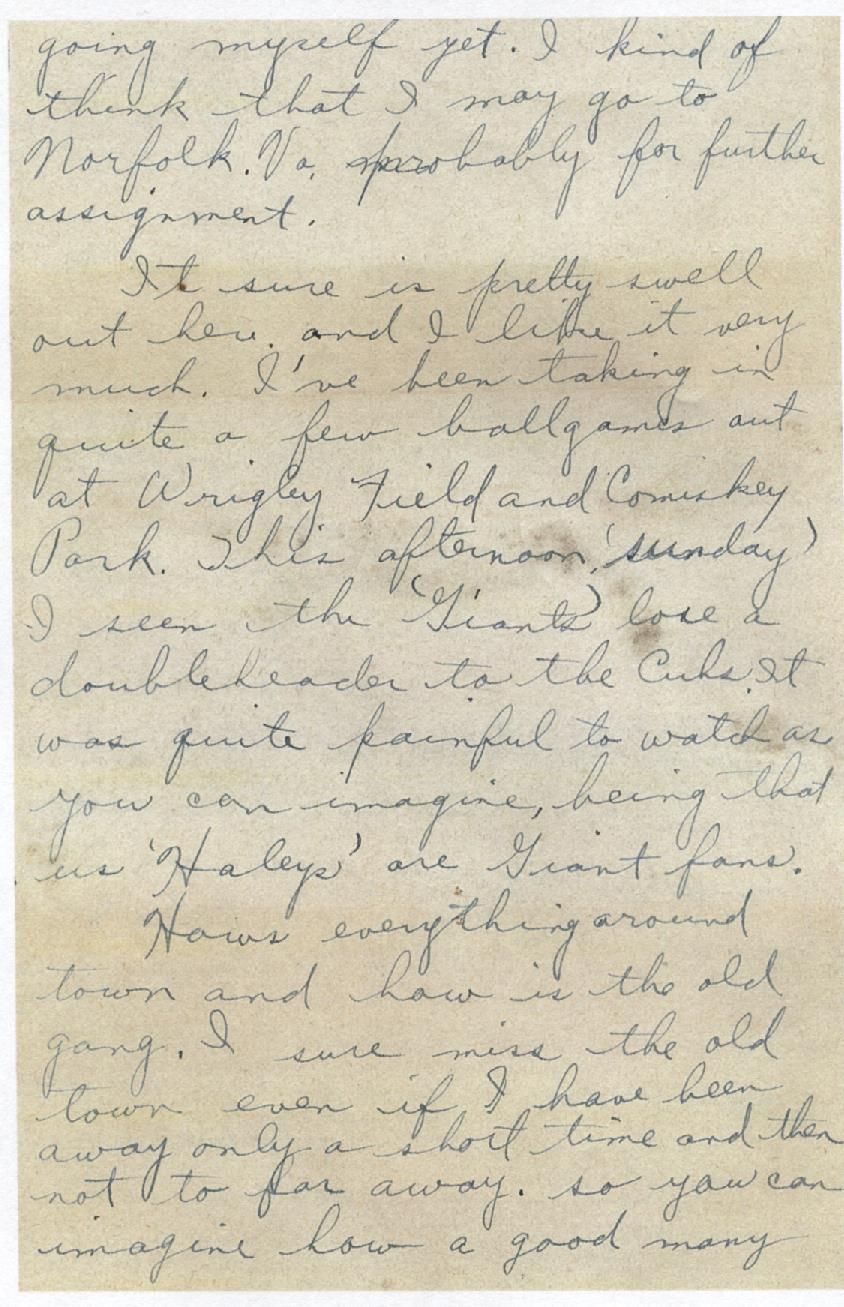 going myself yet. I kind of
think that I may go to
Norfolk. Va. probably for further
assignment.
It sure is pretty swell
out here. and I like it very
much. I've been taking in
quite a few ballgames out
at Wrigley Field and Comiskey
Park. This afternoon, 'sunday'
I seen the 'Giants' lose a
doubleheader to the Cubs. It
was quite painful to watch as
you can imagine, being that
us 'Haleys' are Giant fans.
Hows everything around
town and how is the old
gang. I sure miss the old
town even if I have been
away only a short time and then
not to far away. so you can
imagine how a good many